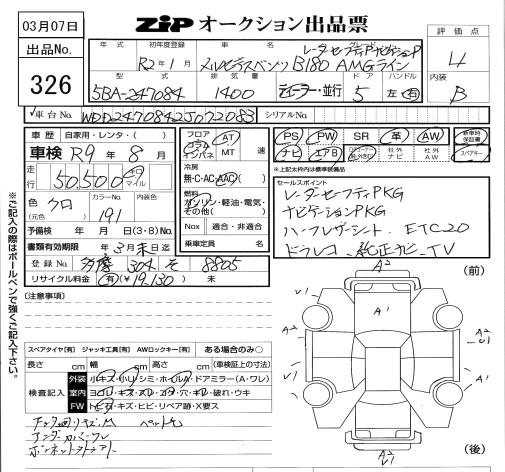 03月07日
ZIP オークション出品票
出品No.
326
年式
初年度登録
R2年1月
車名
メルセデスベンツ B180 AMGライン
グレード
レーダーセーフティP ナビゲーションP
型式
5BA-247084
排気量
1400
ディーラー・並行
ドア
5
ハンドル
左・右
評価点
4
内装
B
車台No.
WDD2470842J072083
シリアルNo.
車歴 自家用・レンタ・( )
車検 R9年8月
走行
50,500
km マイル
色 クロ
(元色)
カラーNo.
191
内装色
予備検 年 月 日(3・8) No.
書類有効期限 年3月末日迄
登録No. 多摩 304 そ 8805
リサイクル料金 有(¥19,130) 未
フロア コラム インパネ
AT
MT
速
冷房
無・C・AC・AAC
燃料
ガソリン・軽油・電気・
その他( )
Nox 適合・非適合
乗車定員 名
PS PW SR 革 AW
新車時保証書
ナビ エアB
社外ナビ
社外AW
スペアキー
※上記太枠内は標準装備品
セールスポイント
レーダーセーフティPKG
ナビゲーションPKG
ハーフレザーシート ETC2.0
ドラレコ 純正ナビ TV
[注意事項]
スペアタイヤ[有] ジャッキ工具[有] AWロックキー[有] ある場合のみ○
長さ cm 幅 cm 高さ cm (車検証上の寸法)
検査記入
外装 小キズ・小凹・シミ・ホイルA・ドアミラー(A・ワレ)
室内 ヨゴレ・キズ・スレ・コゲ・穴・キレ・破れ・ウキ
FW トビ石・キズ・ヒビ・リペア跡・X要ス
アンダーカバーワレ
※ご記入の際はボールペンで強くご記入下さい。
(前)
A2
V1
A1
A2
A2
V1
V1
A1
A2
V1
(後)